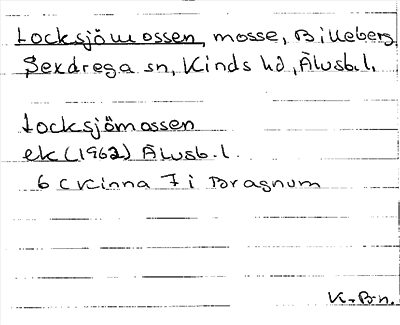 Locksjömossen, mosse, Billeberg
Sexdrega sn, Kinds hd, Älvsb.l.
Locksjömossen
ek (1962) Älvsb.l.
6 C Kinna 7 i Bragnum
K-Bn.